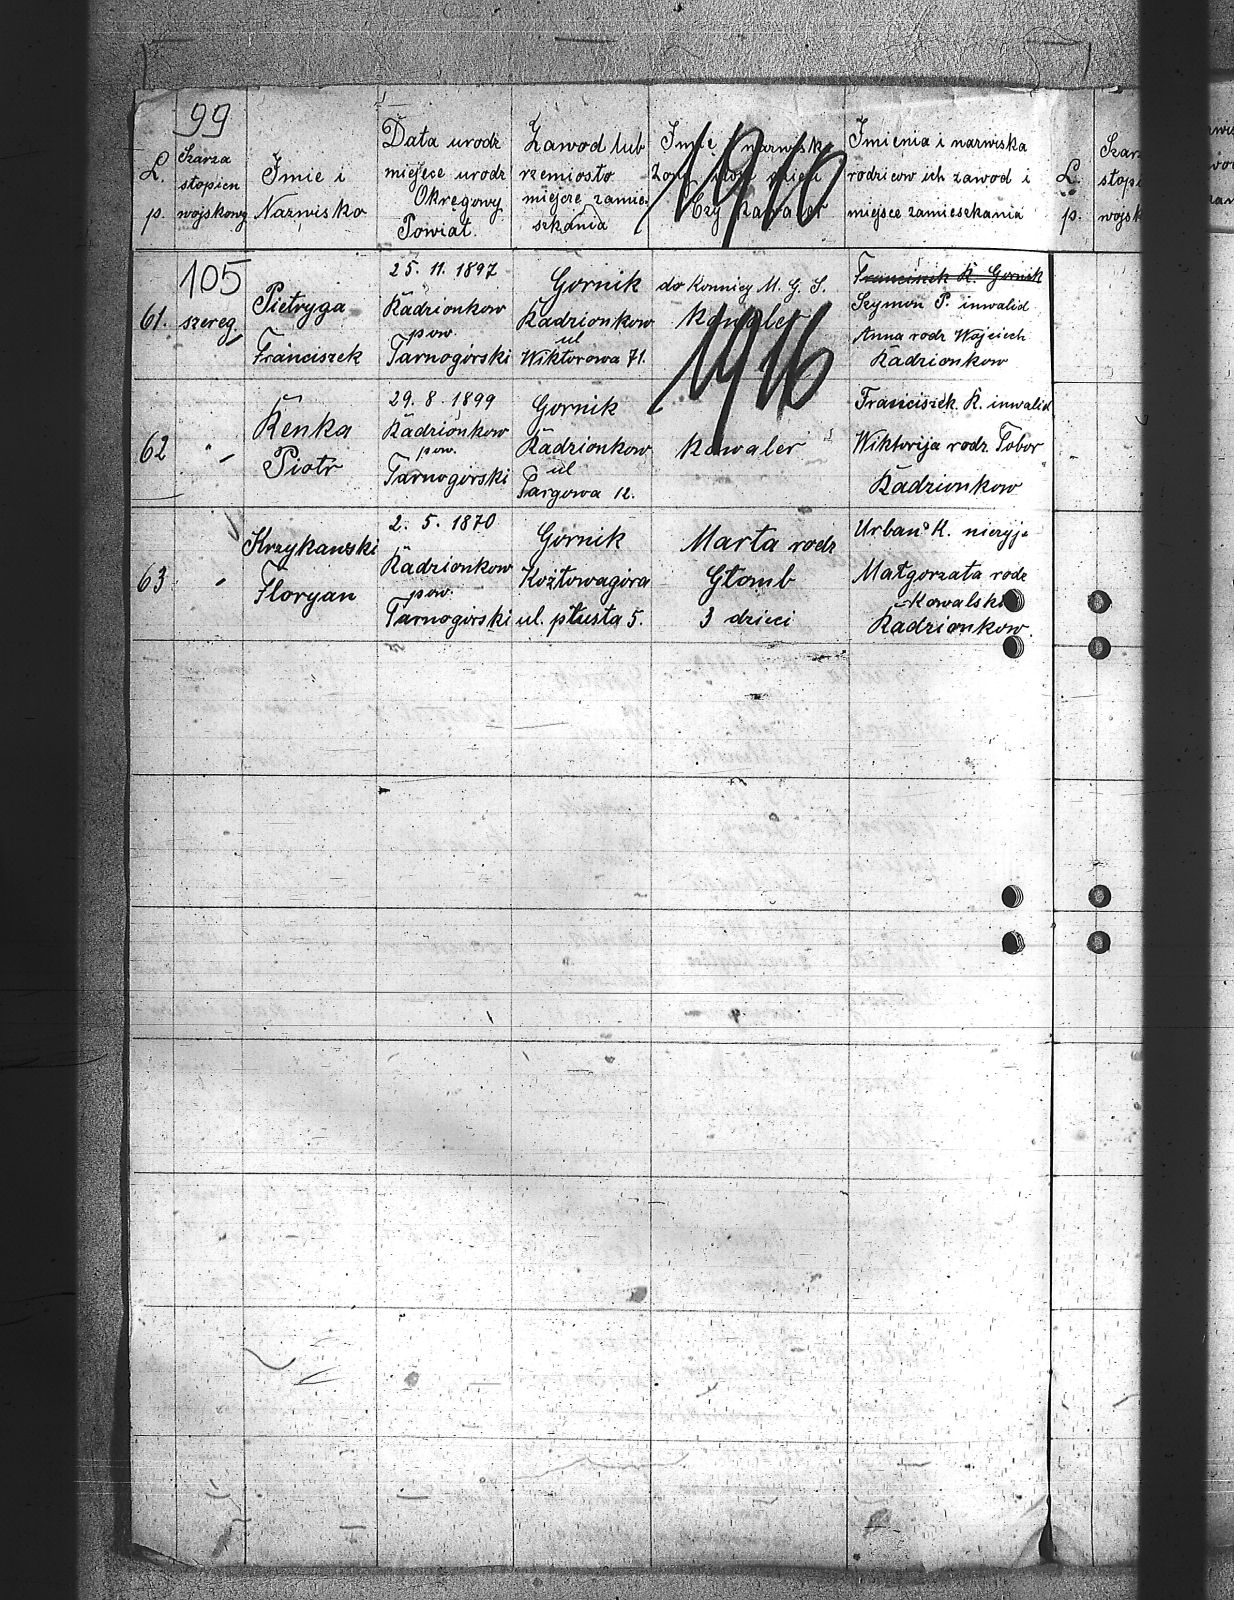 99
L. p.
Szarza
stopien
wojskowy
Imie i
Nazwisko
Data urodz
miejsce urodz
Okręgowy
Powiat.
Zawod lub
rzemiosło
miejsce zamie-
szkania
Imię i nazwisko
Żony
Czy Kawaler
1910
Imienia i nazwiska
rodzicow ich zawod i
miejsce zamieszkania
L. p.
105
61.
szereg.
Pietryga
Franciszek
25. 11. 1897
Radzionkow
pow.
Tarnogórski
Gornik
Radzionkow
ul
Wiktorowa 71.
do Konnicy M. G. S.
Kawaler
1916
Franciszek K. Gornik
Szymon P. inwalid
Anna rodz Wojciech
Radzionkow
62
"
Kenka
Piotr
29. 8. 1899
Radzionkow
pow.
Tarnogorski
Gornik
Radzionkow
ul
Targowa 12.
Kawaler
Franciszek K. inwalid
Wiktorija rodz. Tobor
Radzionkow
63
"
Krzykawski
Floryan
2. 5. 1870
Radzionkow
pow.
Tarnogórski
Gornik
Kozłowagóra
ul. płusta 5.
Marta rodz
Głomb
3 dzieci
Urban K. nieżyje
Małgorzata rodz
Kowalski
Radzionkow.